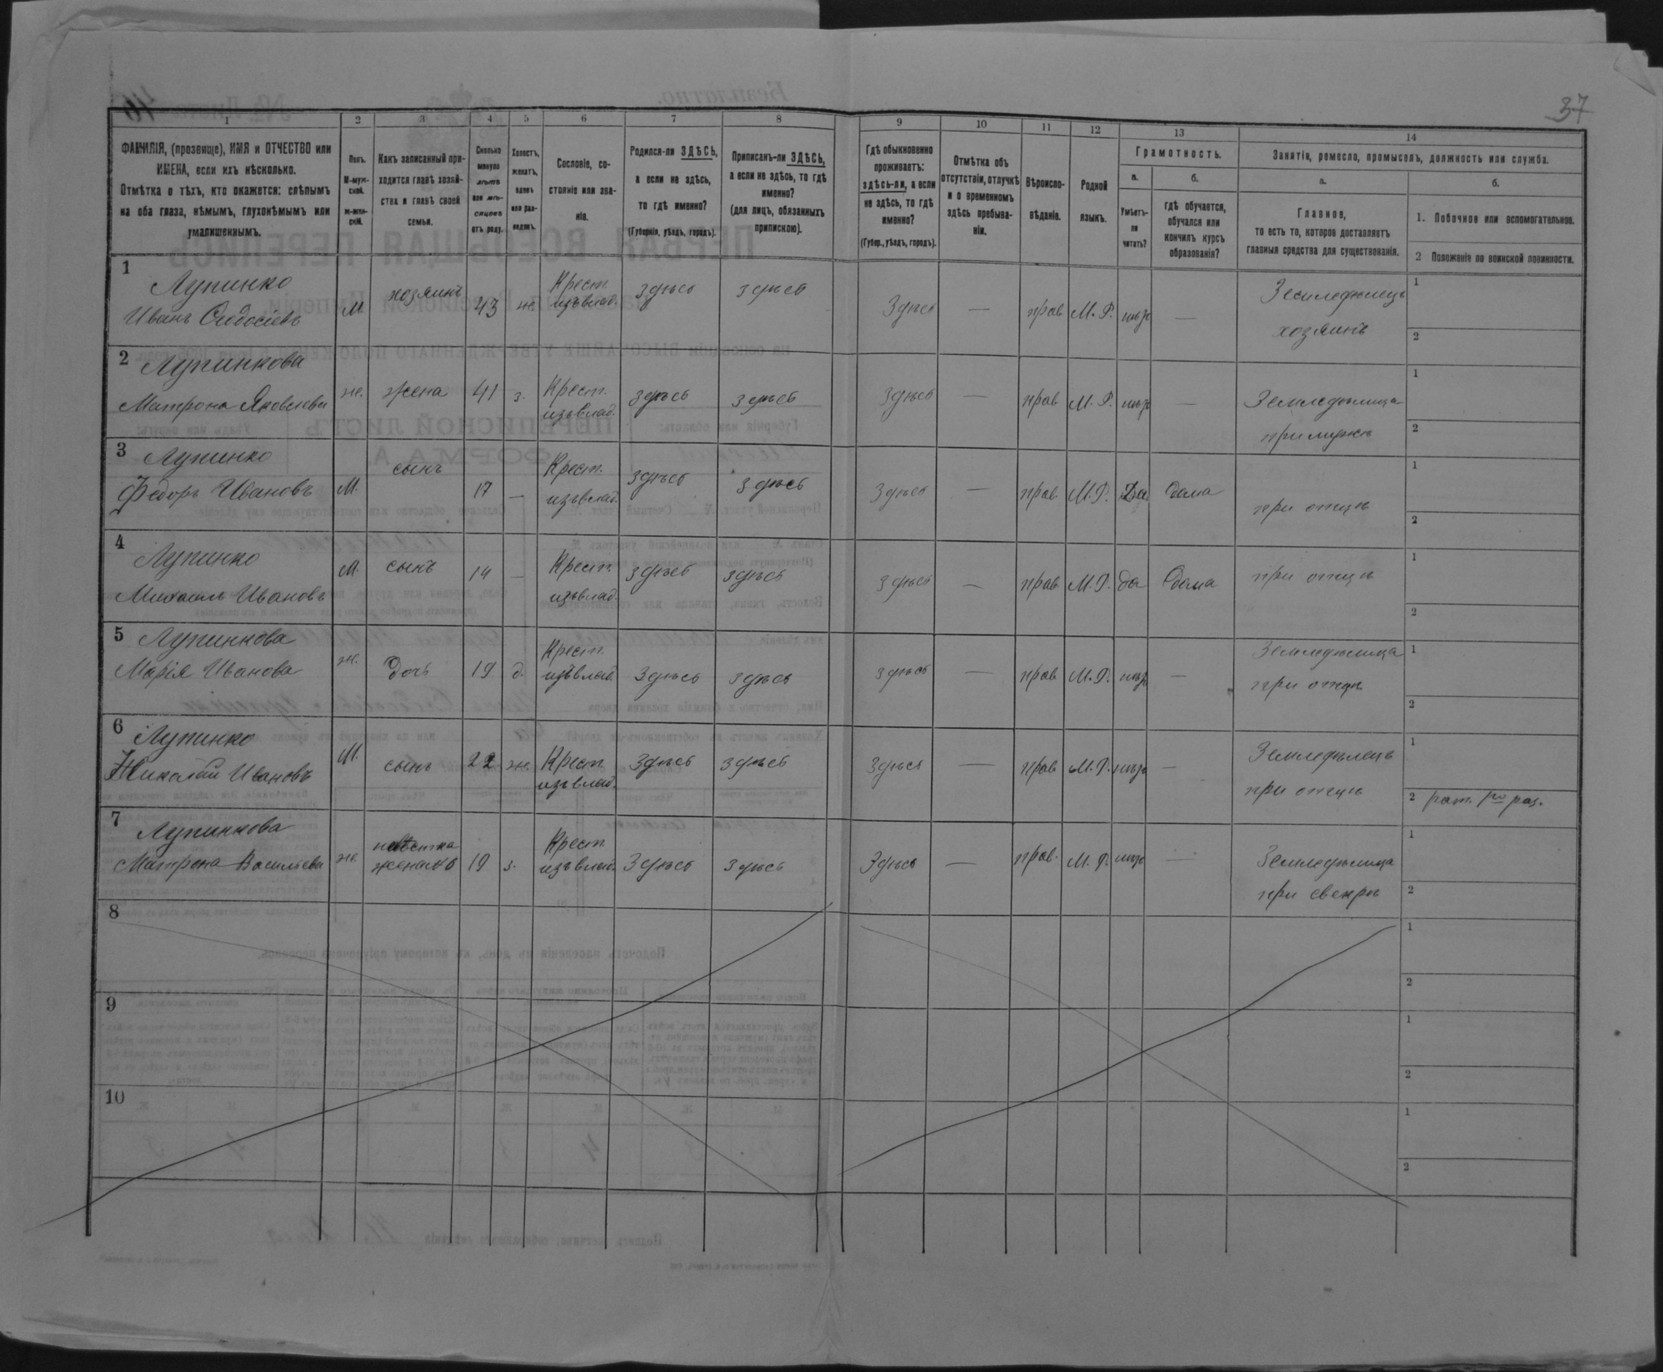 37
1 2 3 4 5 6 7 8 9 10 11 12 13 14
ФАМИЛІЯ, (прозвище), ИМЯ и ОТЧЕСТВО или
ИМЕНА, если ихъ нѣсколько.
Отмѣтка о тѣхъ, кто окажется: слѣпымъ
на оба глаза, нѣмымъ, глухонѣмымъ или
умалишеннымъ.
Полъ.
М-муж-
ской.
ж-жен-
скій.
Какъ записанный при-
ходится главѣ хозяй-
ства и главѣ своей
семьи.
Сколько
минуло
лѣтъ
или мѣ-
сяцевъ
отъ роду.
Холостъ,
женатъ,
вдовъ
или раз-
веденъ.
Сословіе, со-
стояніе или зва-
ніе.
Родился-ли ЗДѢСЬ,
а если не здѣсь,
то гдѣ именно?
(Губернія, уѣздъ, городъ).
Приписанъ-ли ЗДѢСЬ,
а если не здѣсь, то гдѣ
именно?
(для лицъ, обязанныхъ
припискою).
Гдѣ обыкновенно
проживаетъ:
здѣсь-ли, а если
не здѣсь, то гдѣ
именно?
(Губер., уѣздъ, городъ).
Отмѣтка объ
отсутствіи, отлучкѣ
и о временномъ
здѣсь пребыва-
ніи.
Вѣроиспо-
вѣданіе.
Родной
языкъ.
Грамотность.
а.
Умѣетъ-
ли
читать?
б.
гдѣ обучается,
обучался или
кончилъ курсъ
образованія?
Занятіе, ремесло, промыселъ, должность или служба.
а.
Главное,
то есть то, которое доставляетъ
главныя средства для существованія.
б.
1. Побочное или вспомогательное.
2 Положеніе по воинской повинности.
1 Лупинко
Иванъ Сидосіевъ М хозяинъ 43 ж. Крест. изъ влад. здѣсь здѣсь Здѣсь — прав М.Р. нѣтъ — Земледѣлецъ
хозяинъ 1
2
2 Лупинкова
Матрона Яковлева ж. жена 41 з. Крест. изъ влад. здѣсь здѣсь Здѣсь — прав М.Р. нѣтъ — Земледѣлица
при мужѣ 1
2
3 Лупинко
Федоръ Ивановъ М. сынъ 17 — Крест. изъ влад. здѣсь здѣсь Здѣсь — прав М.Р. Да Дома при отцѣ 1
2
4 Лупинко
Михаилъ Ивановъ М. сынъ 14 — Крест изъ влад. здѣсь здѣсь здѣсь — прав М.Р. да Дома при отцѣ 1
2
5 Лупинкова
Марія Иванова ж. дочь 19 д. Крест. изъ влад. здѣсь здѣсь здѣсь — прав М.Р. нѣтъ — Земледѣлица
при отцѣ 1
2
6 Лупинко
Николай Ивановъ М. сынъ 22 ж. Крест изъ влад. здѣсь здѣсь Здѣсь — прав М.Р. нѣтъ — Земледѣлецъ
при отцѣ 1
2 рат. 1го раз.
7 Лупинкова
Матрона Васильева ж. невѣстка 19 з. Крест изъ влад. здѣсь здѣсь Здѣсь — прав. М.Р. нѣтъ — Земледѣлица
при свекрѣ 1
2
8 1
2
9 1
2
10 1
2